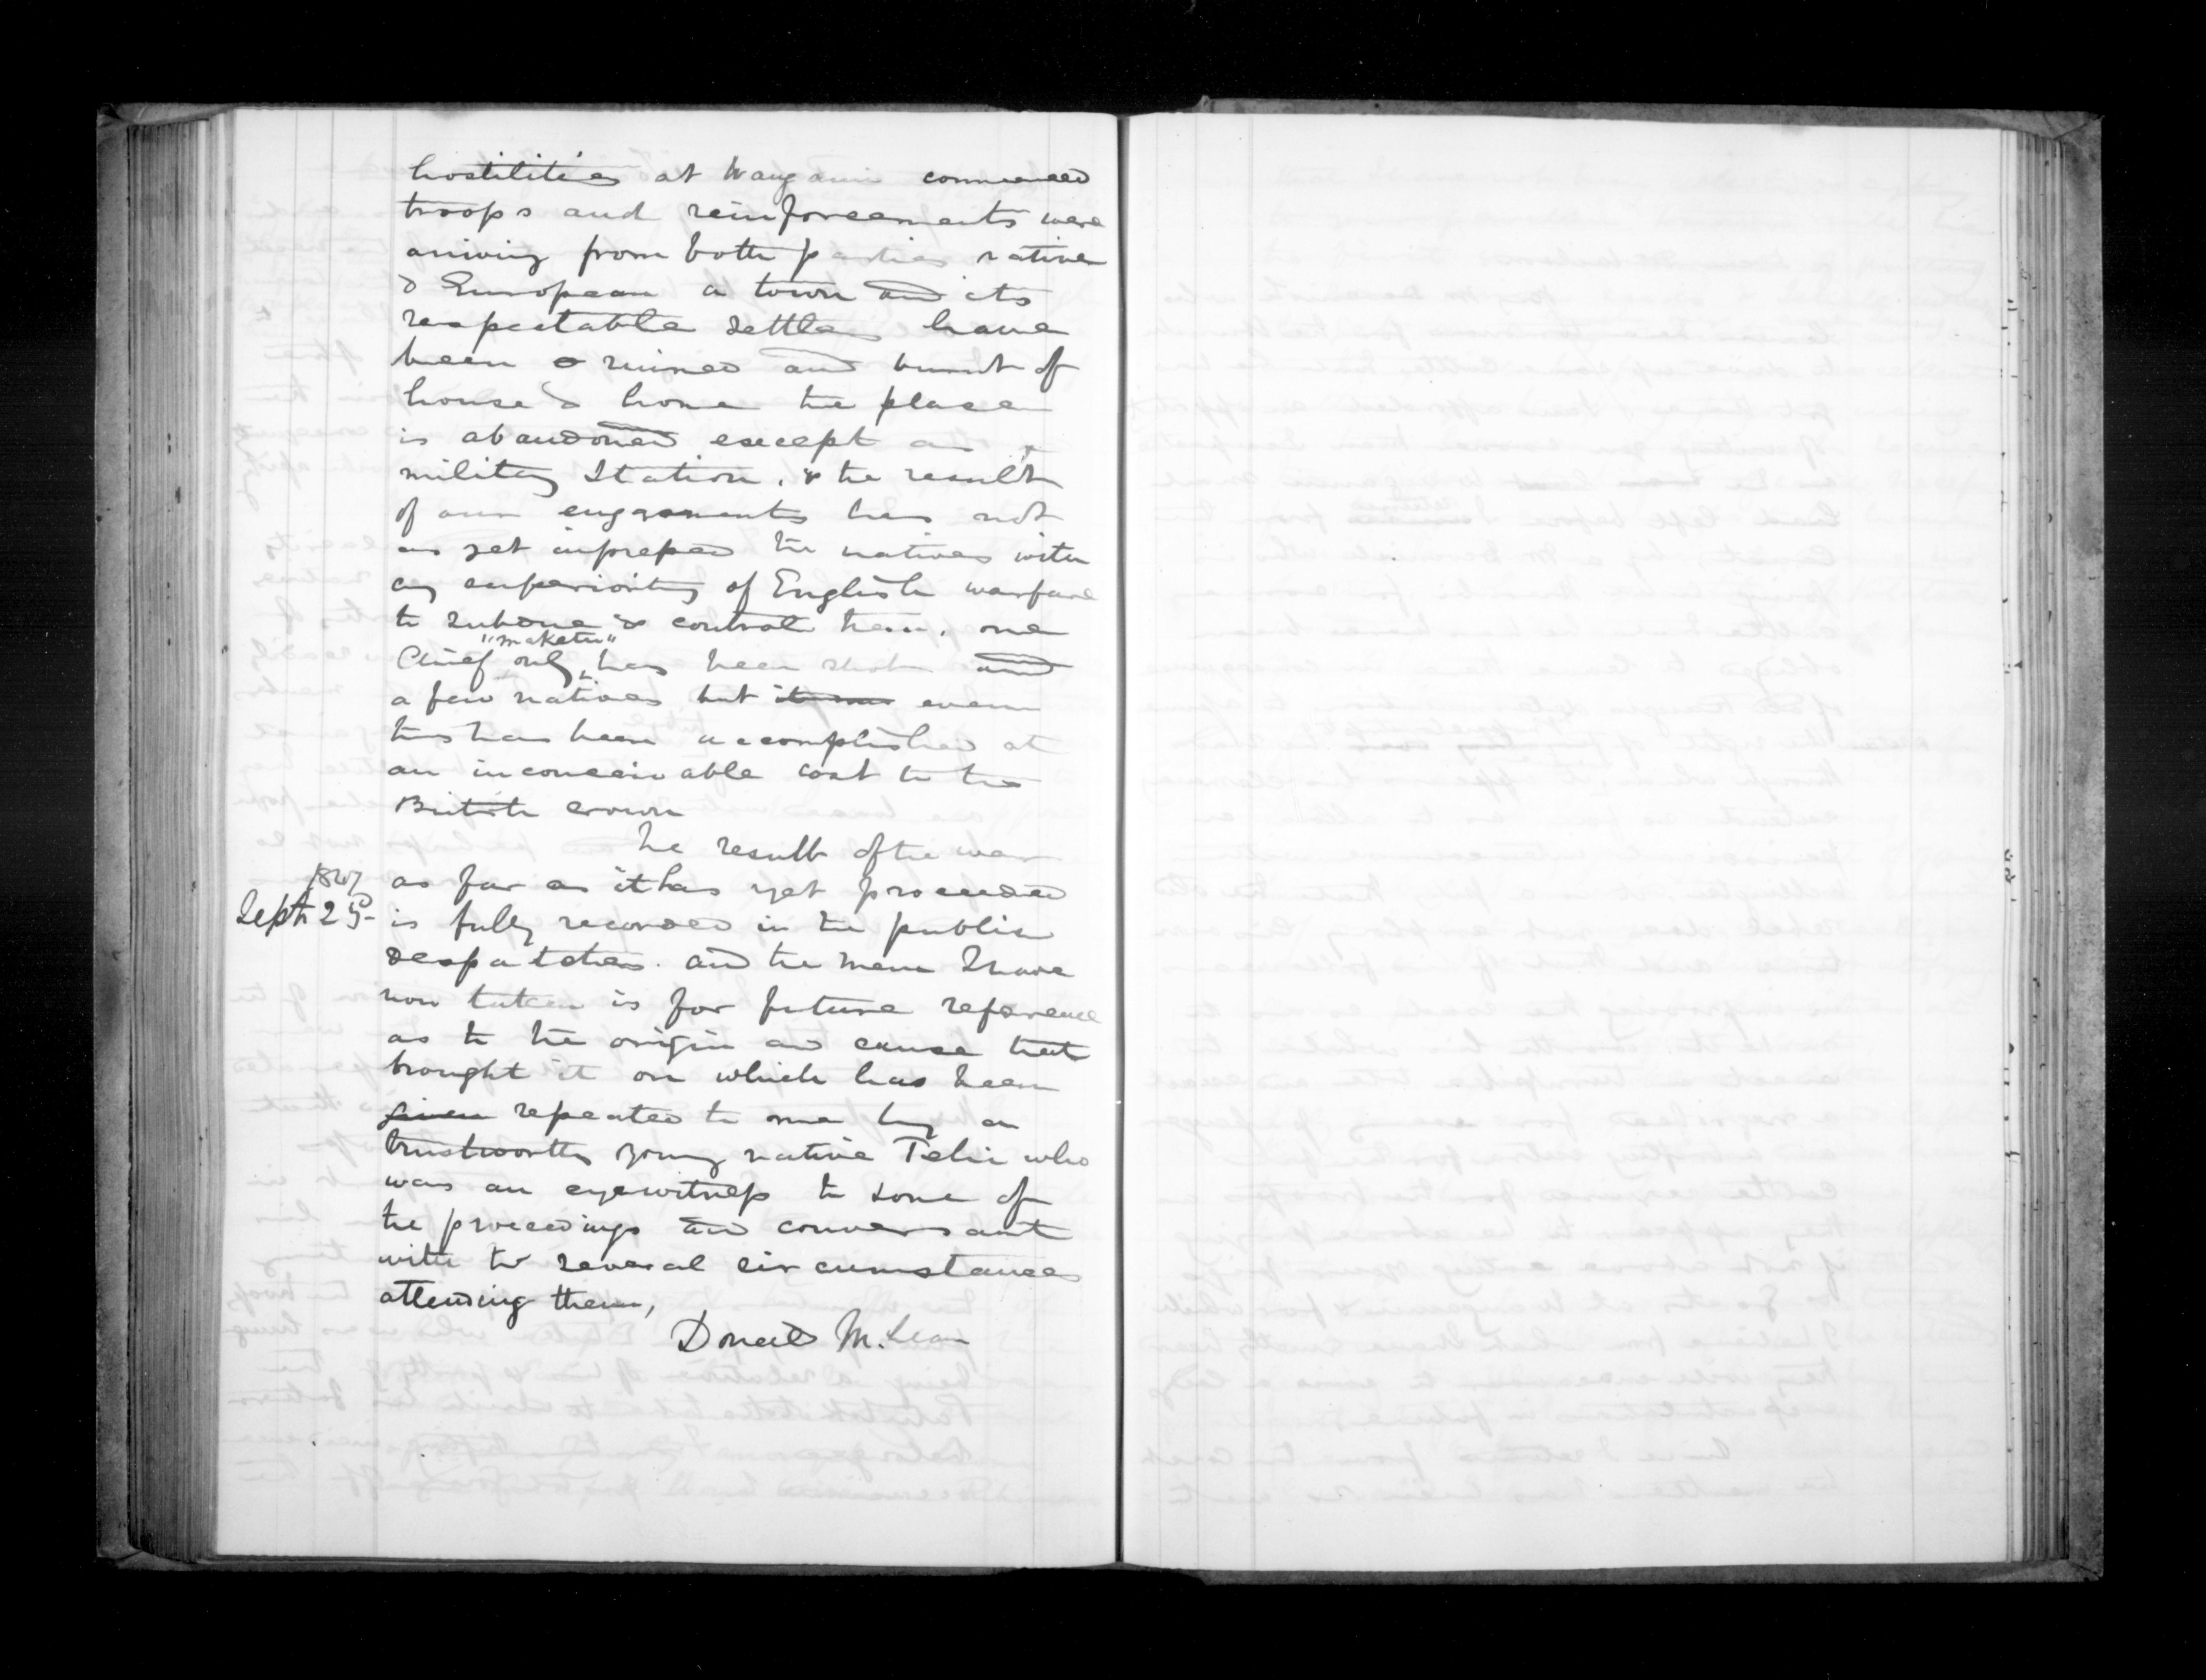 hostilities at Wanganui commenced
troops and reinforcements were
arriving from both parties native
& European a town and its
respectable settlers have
been ruined and burnt of
house & home the place
is abandoned except as a
military Station, & the result
of our engagements has not
as yet impressed the natives with
any superiority of English warfare
to subdue & control them. one
"maketu"
Chief only has been shot and
a few natives but it was even
this has been accomplished at
an inconceivable cost to the
British crown
The result of the war
1847
as far as it has yet proceeded
Sept 25- is fully recorded in the public
despatches. and the mem I have
now taken is for future reference
as to the origin and cause that
brought it on which has been
given repeated to me by a
trustworthy young native Tahi who
was an eyewitness to some of
the proceedings and conversant
with the several circumstances
attending them,
Donald McLean